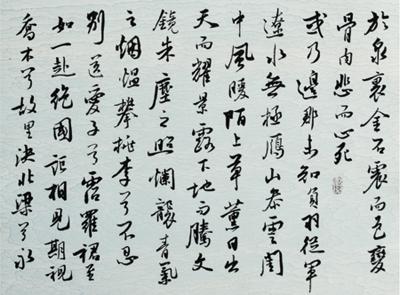 於泉裏金石震而色變
骨肉悲而心死
或乃邊郡未和負羽從軍
遼水無極鴈山參雲閨
中風暖陌上草薰日出
天而耀景露下地而騰文
鏡朱塵之照爛襲青氣
之烟熅攀桃李兮不忍
別送愛子兮霑羅裙至
如一赴絕國詎相見期視
喬木兮故里決北梁兮永